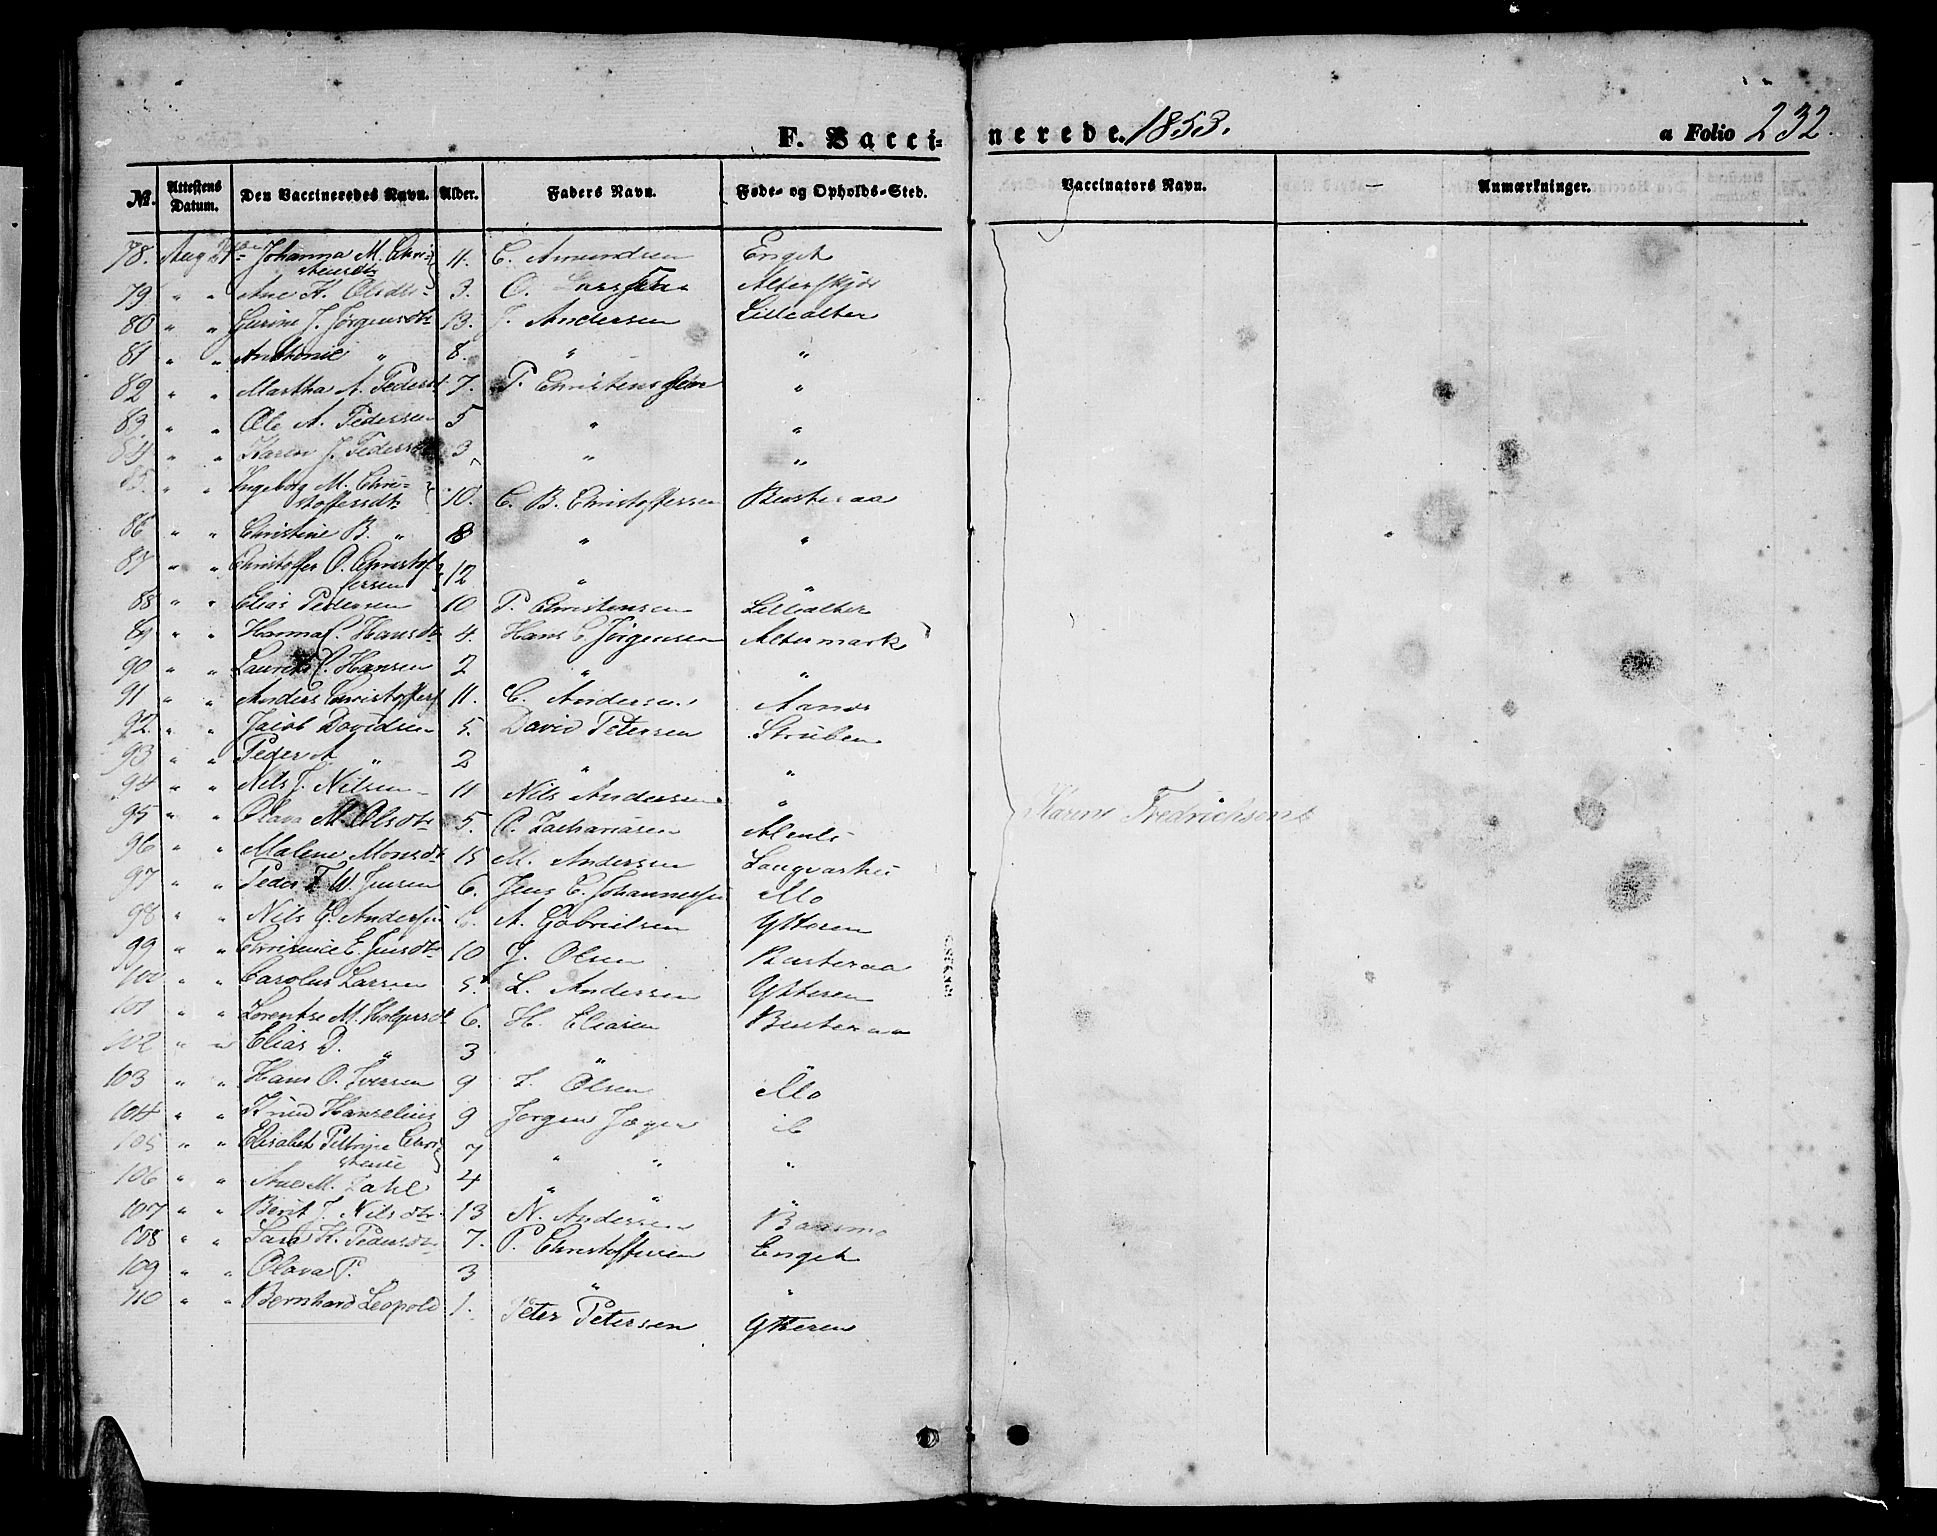 F. Vaccinerede. 1853. a Folio 232.
№. Attestens Datum. Den Vaccineredes Navn. Alder. Faders Navn. Føde- og Opholds-Sted. Vaccinators Navn. — Anmærkninger.
78. Aug Johanna M. Chri-
stensdtr 11. C. Amundsen Enget
79 " " Ane H. Olsdtr 3. O. Larssen Alterskjær
80 " " Gurine J. Jørgensdtr 13. J. Andersen Lillealter
81 " " Anthonie " 8. " "
82 " " Martha A. Pedersdt 7. P. Christenssen "
83. " " Ole A. Pedersen 5 " "
84 " " Karen J. Pedersdt 3 " "
85. " " Ingeborg M. Chri-
stoffersdtr 10. C. B. Christoffersen Busteraa
86 " " Christine B. " 8 " "
87 " " Christoffer O. Christof-
fersen 12 " "
88 " " Elias Pedersen 10 P. Christensen Lillealter
89 " " Hanna C. Hansdtr 4. Hans C. Jørgensen Altermark
90 " " Laurits C. Hansen 2 " "
91 " " Anders Christoffers 11. C. Andersen
92. " " Jacob Davidsen 5. David Petersen Struben
93 " " Peder A " 2 " "
94 " " Nils J. Nilsen 11 Nils Andersen "
95 " " Olava M. Olsdtr 5. O. Zachariasen Karine Fredrichsens
96 " " Malene Monsdt 15 M. Andersen Langvashei
97 " " Peder T. W. Jensen 6. Jens C. Johannessen Mo
98 " " Nils G. Andersen 6. A. Gabrielsen Ytteren
99 " " E. Jensdtr 10 J. Olsen Busteraa
100 " " Carolus Larsen 5. L. Andersen Ytteren
101 " " Lorentse M. Holgersdt 6. H. Eliasen Busteraa
102 " " Elias D. " 3 " "
103 " " Hans O. Iversen 9 I. Olsen Mo
104 " " Knud Hanselius 9 Jørgen Jæger ib
105 " " Elisabet Petrine Chri-
stence 7 " " "
106 " " Ane M. Dahl 4 " "
107 " " Berit J. Nilsdtr 13 N. Andersen Baasmo
108 " " Sara H. Pedersdtr 7. P. Christoffersen Enget
109 " " Olava P. " 3 " "
110 " " Bernhard Leopold 1. Peter Petersen Ytteren